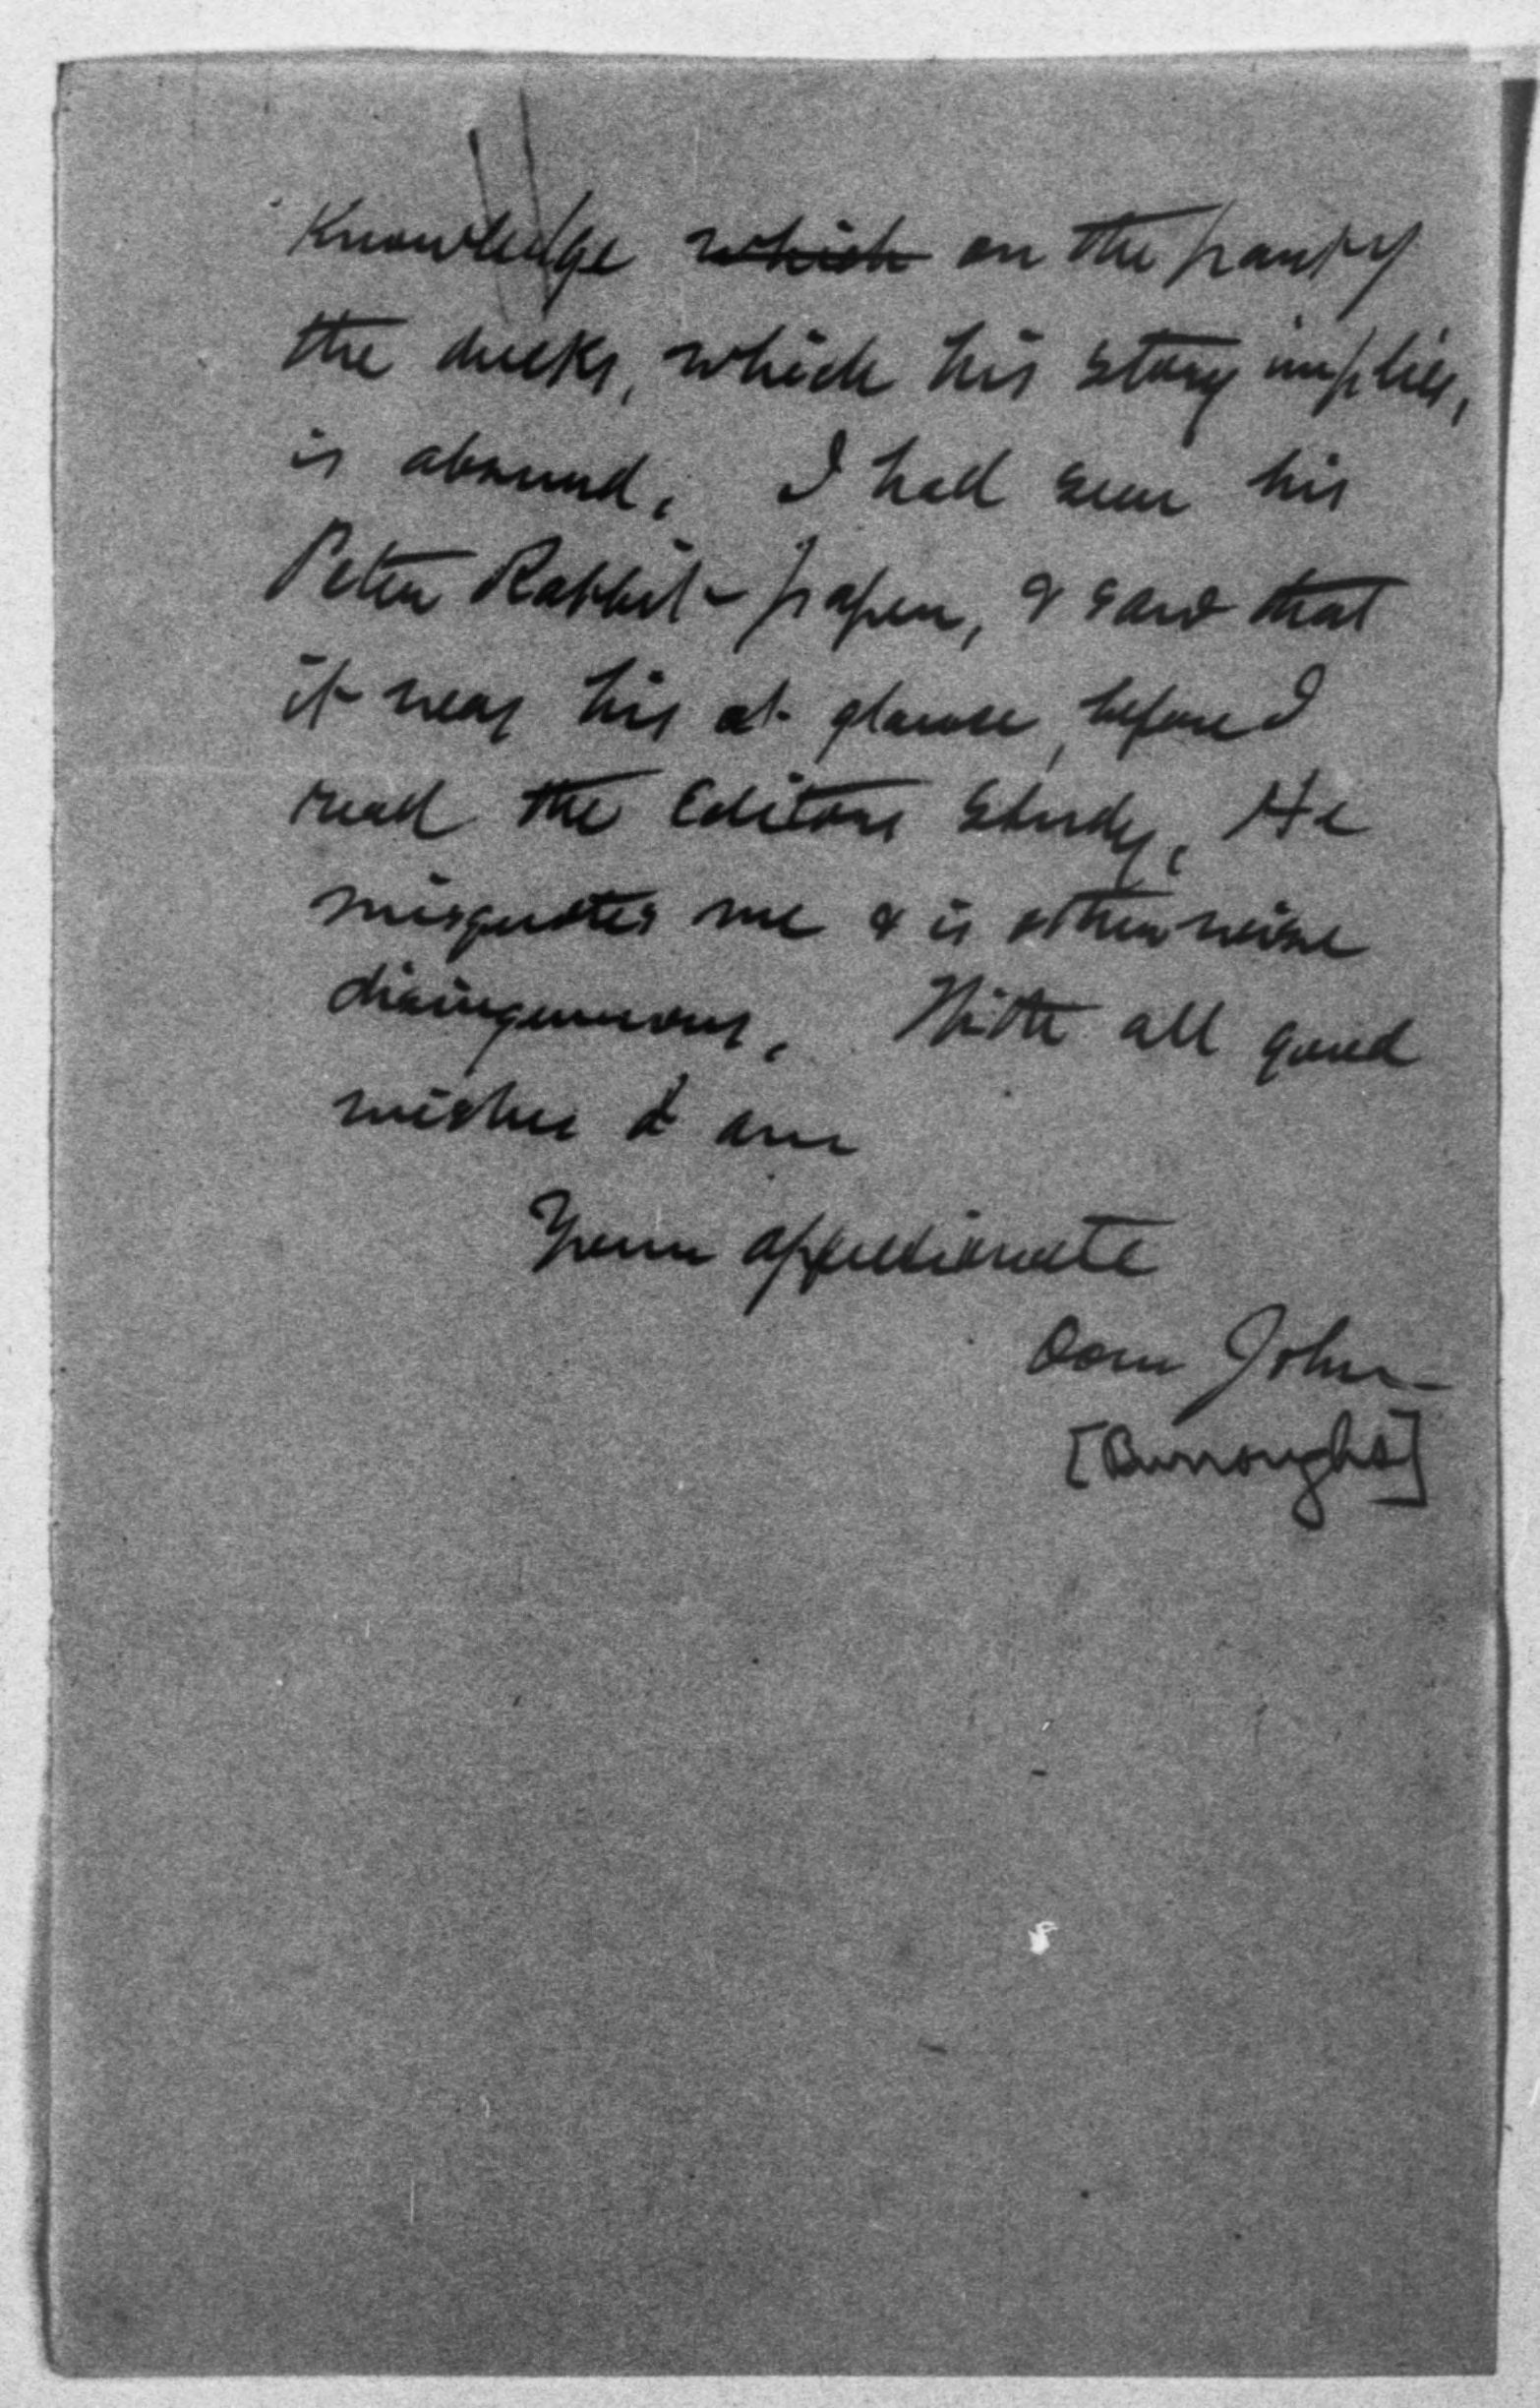 Knowledge which on the part of
the ducks, which his story implies,
is absurd. I had seen his
Peter Rabbit paper, & saw that
it was his at glance, before I
read the Editors Study. He
misquotes me & is otherwise
disingenuous. With all good
wishes I am
Yours affectionate
Oom John
[Burroughs]